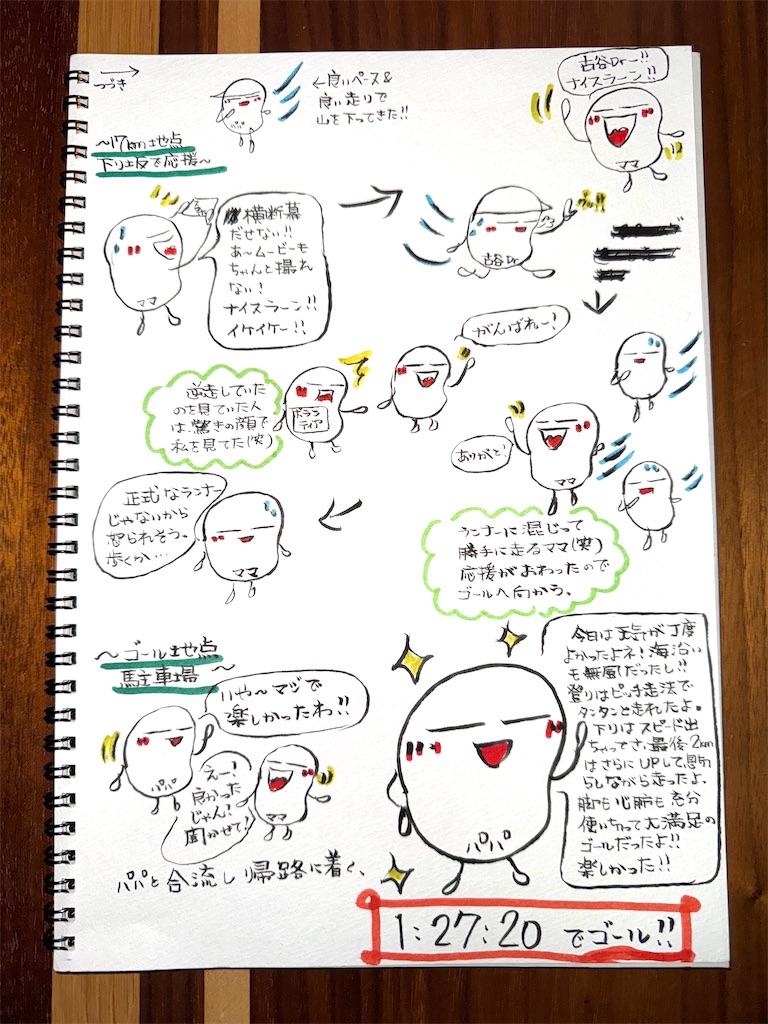 つづき
←良いペース&
良い走りで
山を下ってきた!!
古谷Dr―!!
ナイスラーン!!
ママ
〜17km地点
下り坂で応援〜
横断幕
だせない!!
あ〜ムービーも
ちゃんと撮れ
ない!
ナイスラーン!!
イケイケー!!
ママ
古谷Dr
がんばれー!
逆走していた
のを見ていた人
は驚きの顔で
私を見てた(笑)
ボラン
ティア
ありがと!
ママ
正式なランナー
じゃないから
怒られそう。
歩くか…
ママ
ランナーに混じって
勝手に走るママ(笑)
応援がおわったので
ゴールへ向かう。
〜ゴール地点
駐車場〜
いや〜マジで
楽しかったわ!!
パパ
えー!
良かった
じゃん!
聞かせて!
ママ
パパと合流し帰路に着く、
今日は天気が丁度
よかったよネ!海沿い
も無風だったし!!
登りはピッチ走法で
タンタンと走れたよ。
下りはスピード出
ちゃってさ、最後2km
はさらにUPして、息切
らしながら走ったよ。
脚も心肺も充分
使い切って大満足の
ゴールだったよ!!
楽しかった!!
パパ
1:27:20 でゴール!!